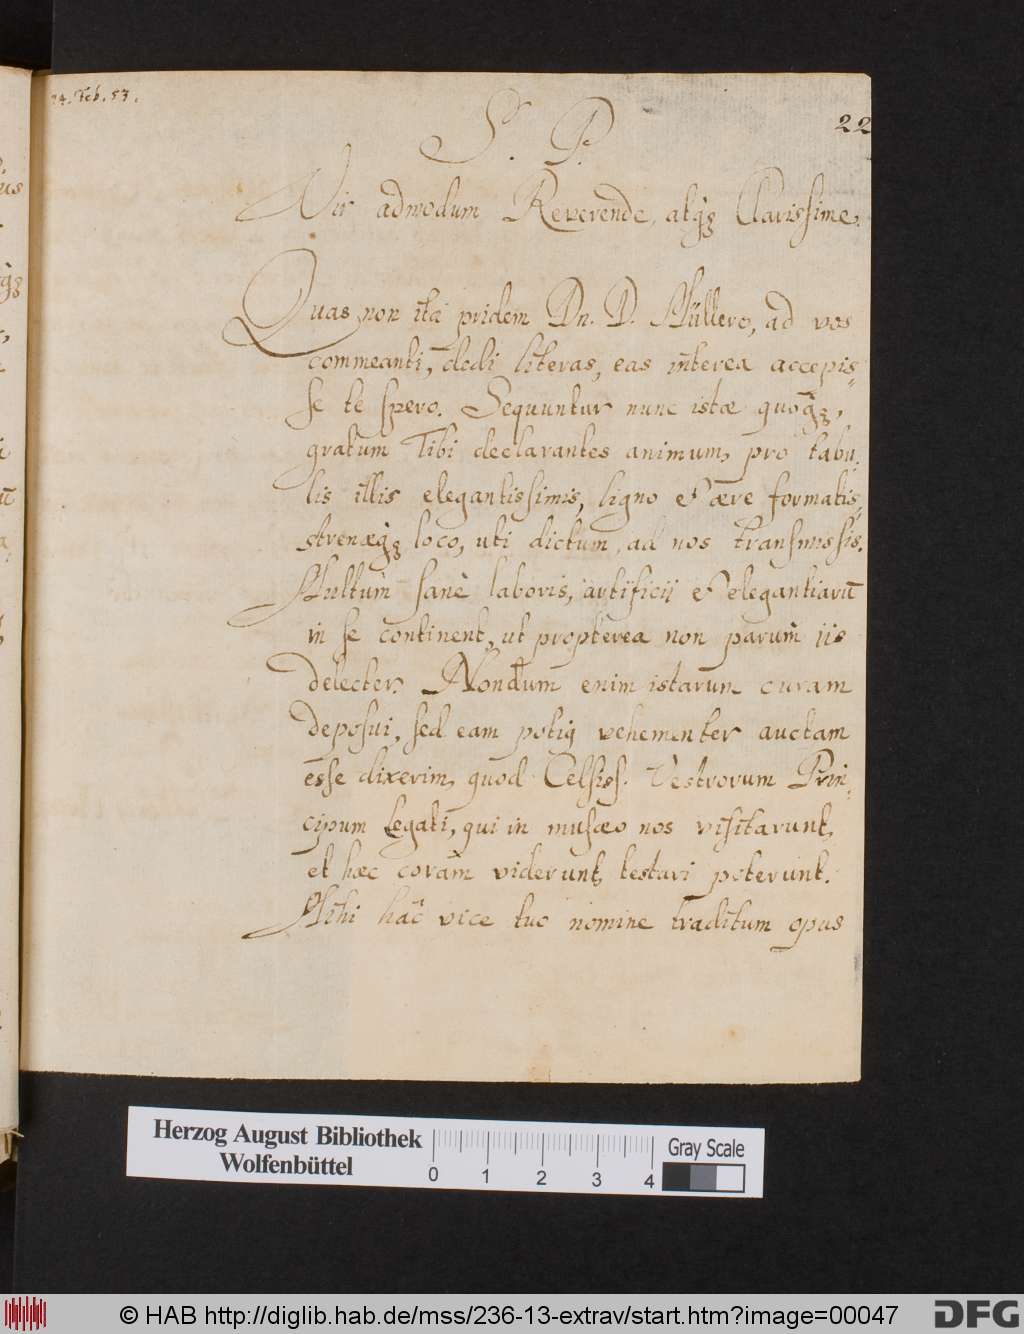 24. Feb. 53.
22
S. P.
Vir admodum Reverende, atq̃ȝ Clarissime.
Quas non ita pridem Dn. D. Müllero, ad vos
commeanti, dedi literas, eas interea accepis-
se te spero. Sequuntur nunc istæ quoq̃ȝ,
gratum Tibi declarantes animum, pro tabu-
lis illis elegantissimis, ligno et ære formatis,
strenæq̃ȝ loco, uti dictum, ad nos transmissis.
Multum sanè laboris, artificii et elegantiarū
in se continent, ut propterea non parum iis
delecter. Nondum enim istarum curam
deposui, sed eam potiq vehementer auctam
esse dixerim, quod Celsiss. Vestrorum Prin-
cipum Legati, qui in musæo nos visitarunt,
et hæc coram viderunt, testari poterunt.
Mihi hâc vice tuo nomine traditum opus
Herzog August Bibliothek
Wolfenbüttel
0 1 2 3 4
Gray Scale
© HAB http://diglib.hab.de/mss/236-13-extrav/start.htm?image=00047
DFG